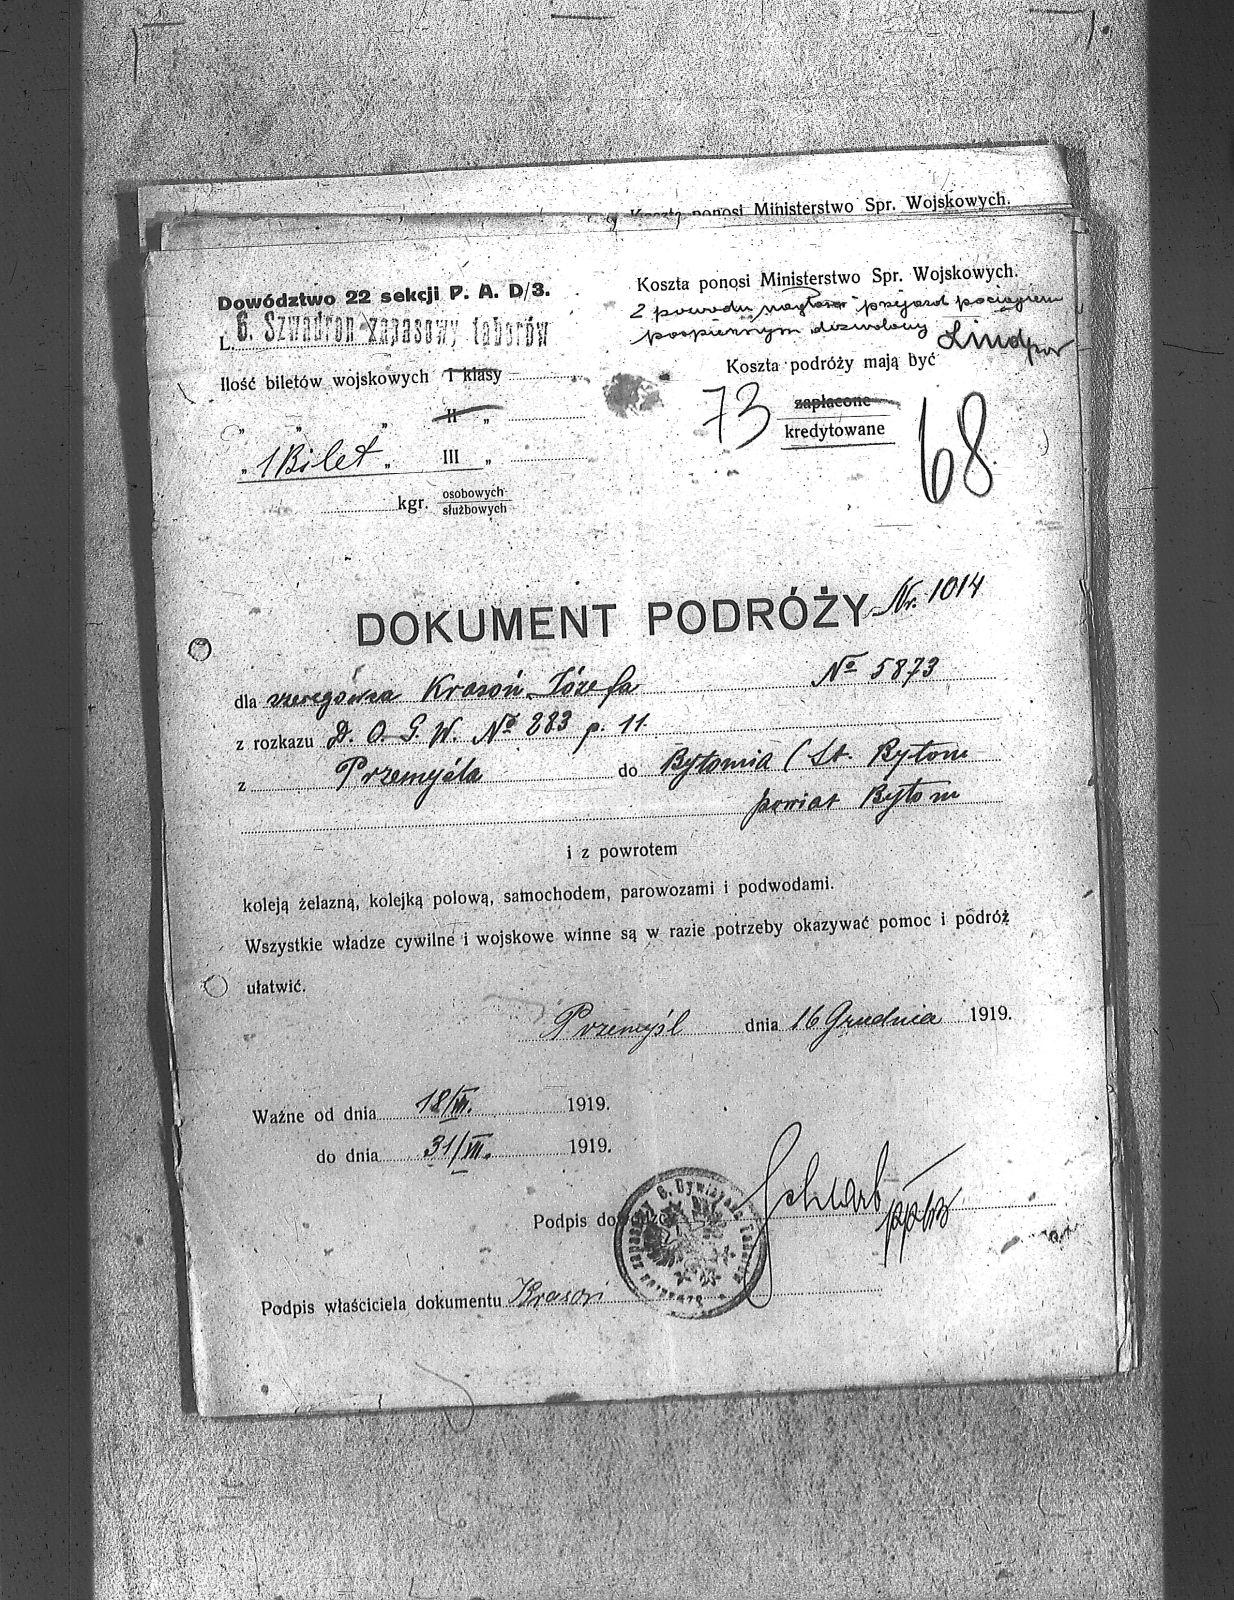 Koszta ponosi Ministerstwo Spr. Wojskowych.
Dowództwo 22 sekcji P. A. D/3.
L. 6. Szwadron zapasowy taborów
Koszta ponosi Ministerstwo Spr. Wojskowych.
Z powodu przejazd pociągiem
pospiesznym dozwolony
Ilość biletów wojskowych I klasy
Koszta podróży mają być
" " " II "
73 zapłacone
kredytowane 68
" 1 Bilet " III "
kgr. osobowych
służbowych
DOKUMENT PODRÓŻY Nr. 1014
dla szeregowca Krasoń Józefa No 5873
z rozkazu D. O. G. W. No 283 p. 11.
z Przemyśla do Bytomia (St. Bytom
powiat Bytom
i z powrotem
koleją żelazną, kolejką polową, samochodem, parowozami i podwodami.
Wszystkie władze cywilne i wojskowe winne są w razie potrzeby okazywać pomoc i podróż
ułatwić.
Przemyśl dnia 16 Grudnia 1919.
Ważne od dnia 18/XII. 1919.
do dnia 31/XII. 1919.
Podpis
Podpis właściciela dokumentu Krasoń